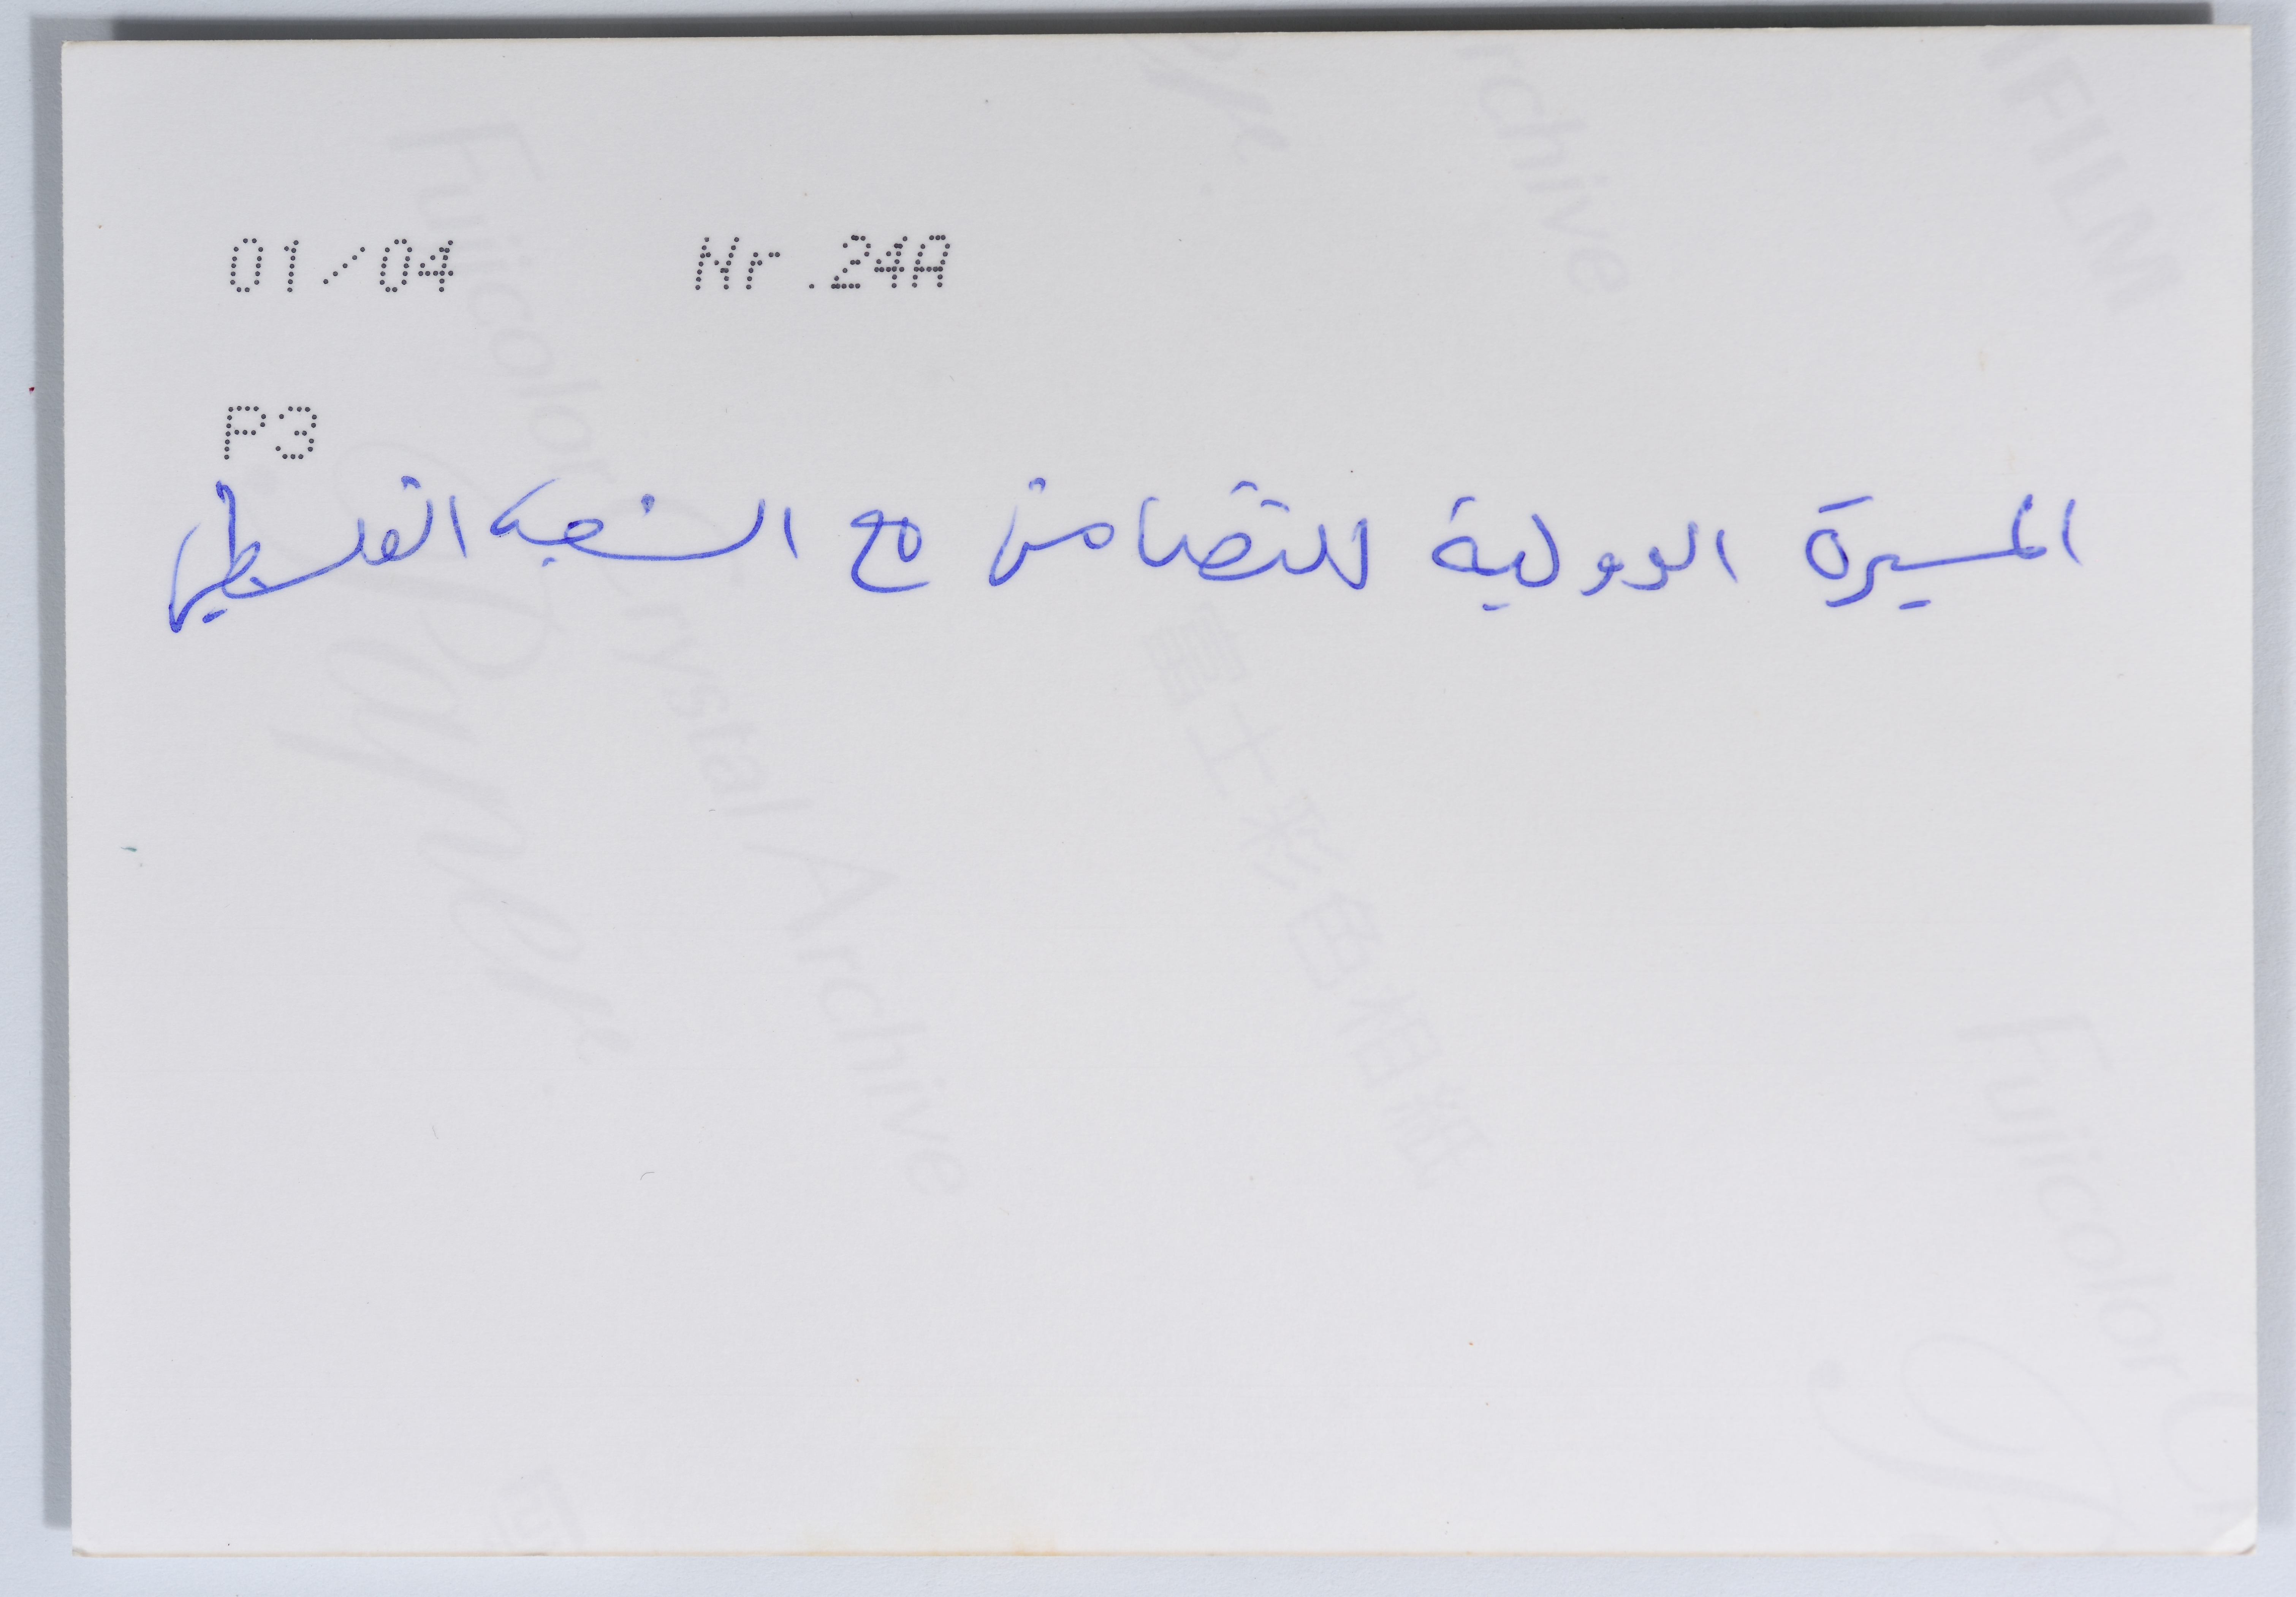 01/04 Nr.24A
P3
المسيرة الدولية للتضامن مع الشعب الفلسطيني
Fujicolor Crystal Archive
Paper
富士彩色相紙
rchive
IFILM
Fujicolor